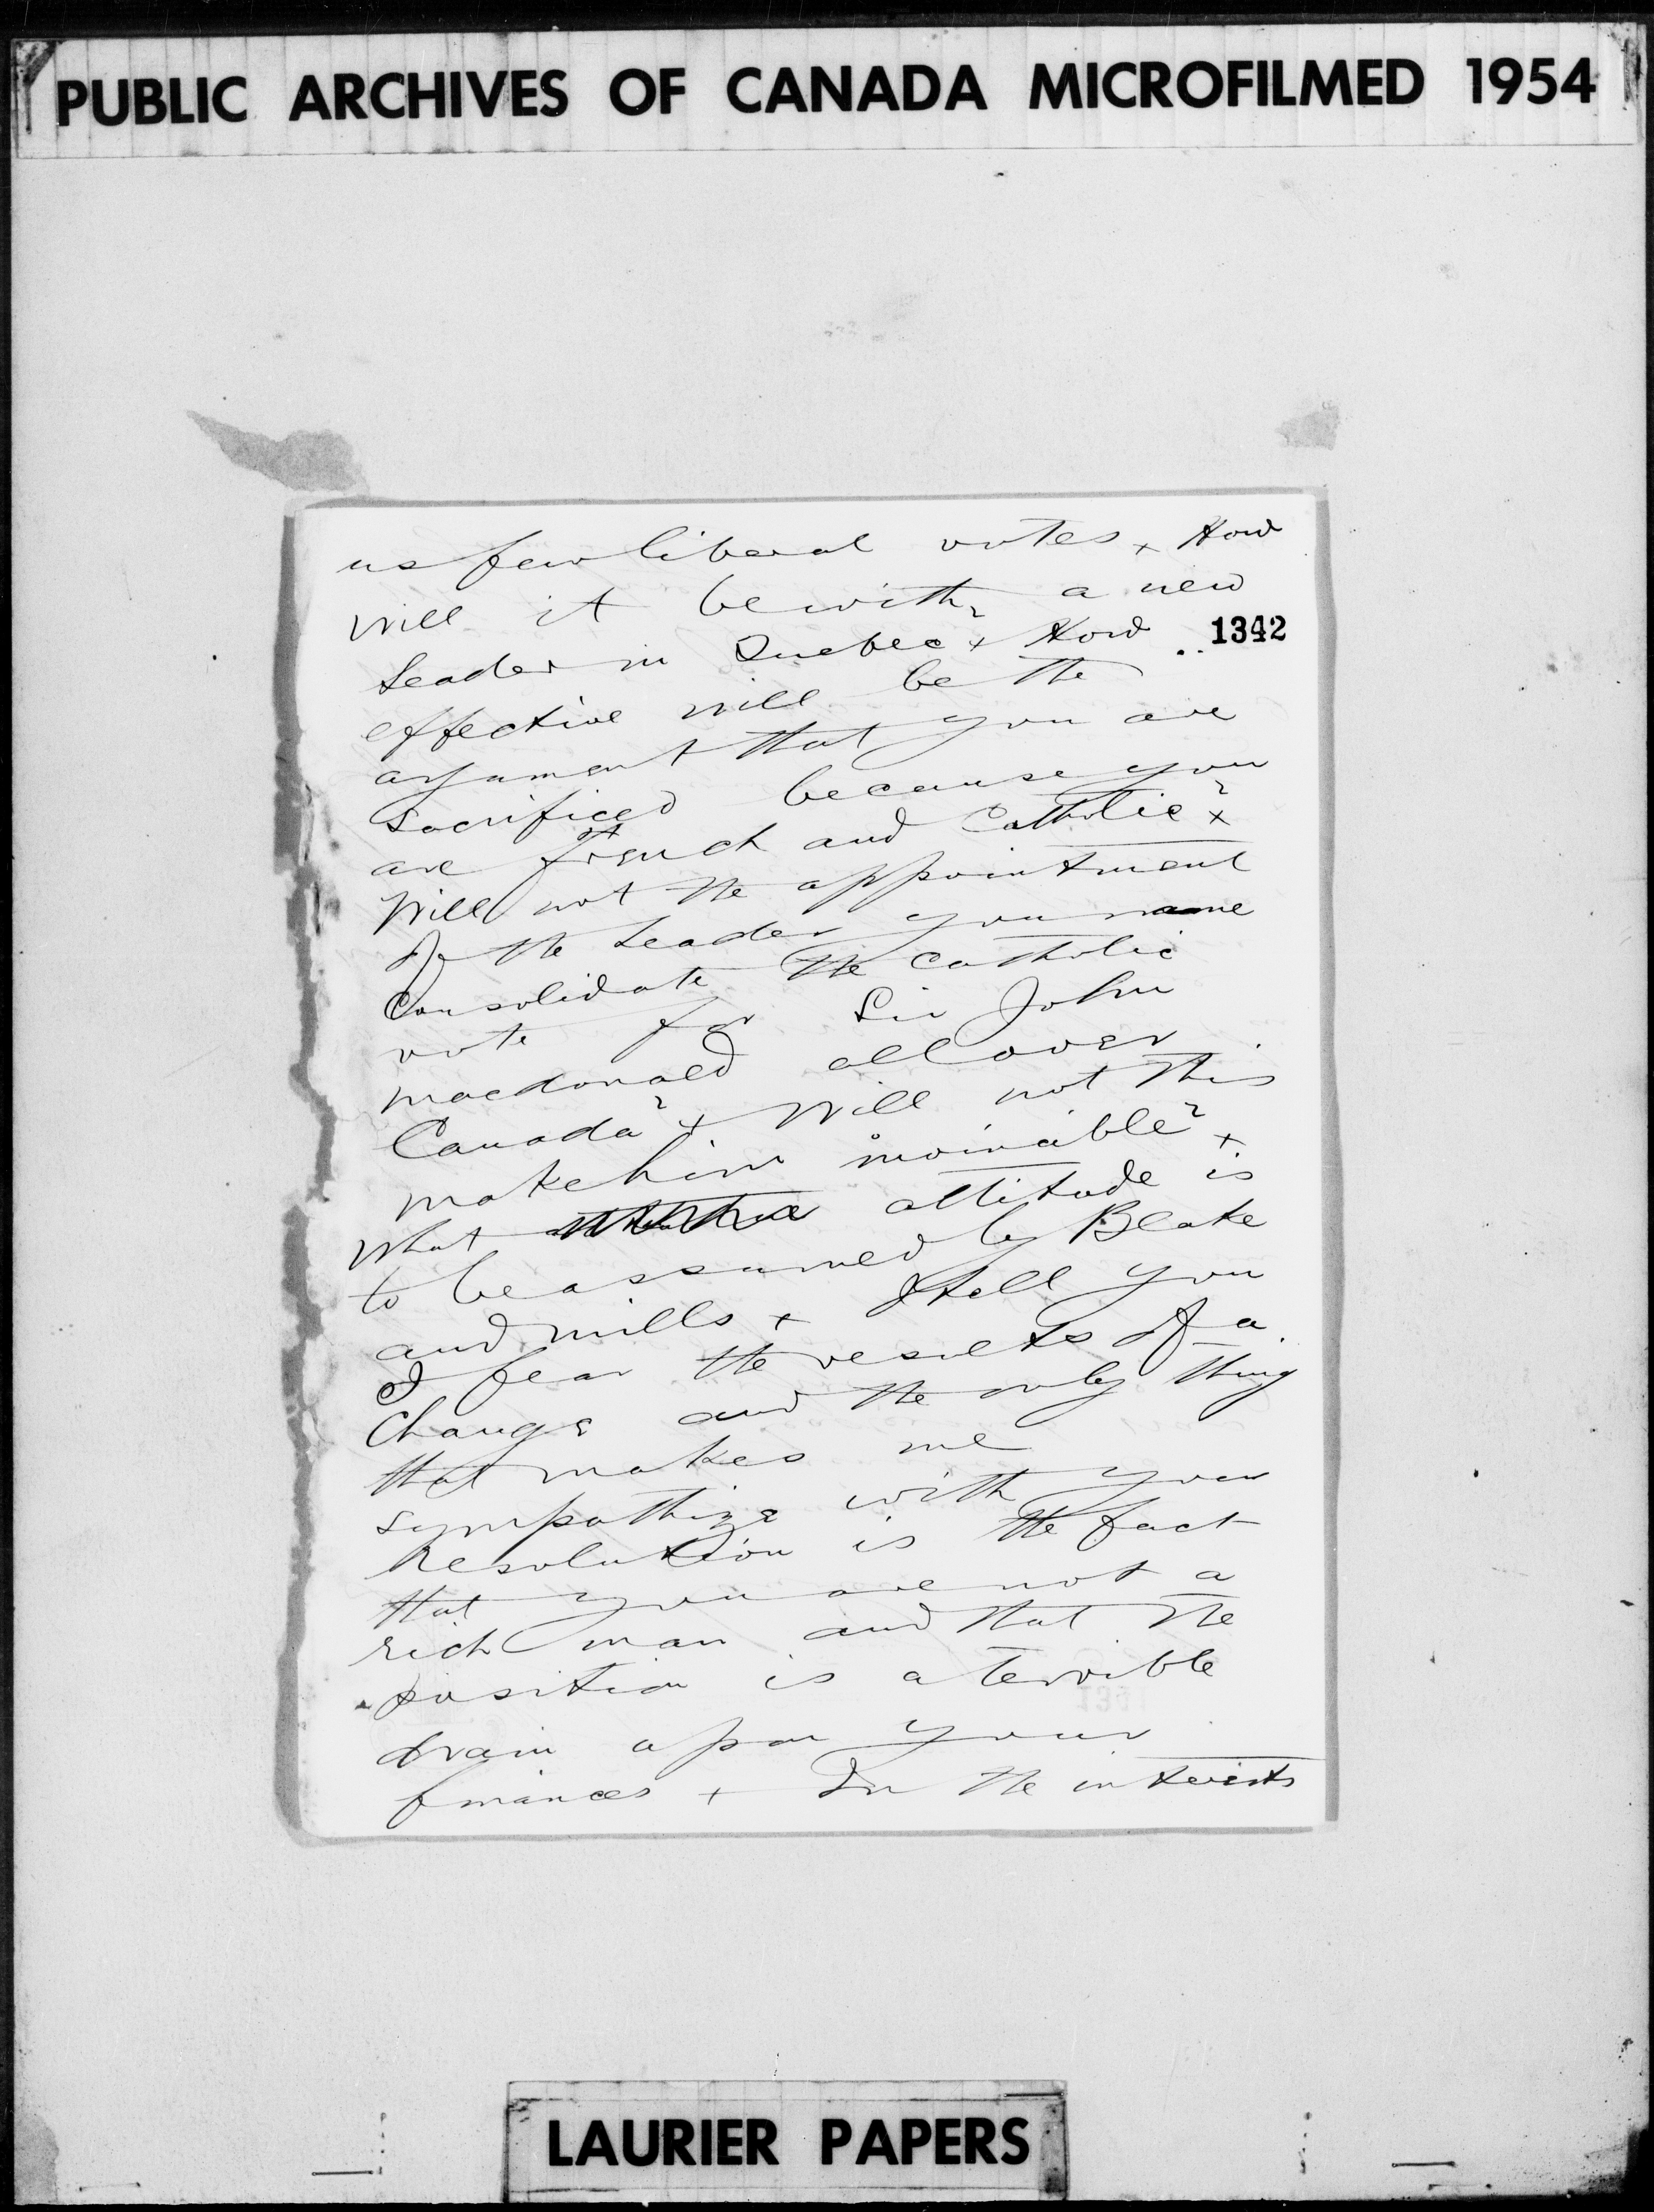 PUBLIC ARCHIVES OF CANADA MICROFILMED 1954
us few liberal votes x How
will it be with a new
Leader in Quebec? x How
1342
effective will be the
argument that you are
Sacrificed because you
are French and Catholic? x
Will not the appointment
of the Leader you name
Consolidate the Catholic
vote for Sir John
macdonald all over
Canada? x Will not this
make him invincible? x
What attitude is
to be assumed by Blake
and mills x I tell you
I fear the results of a
Change and the only thing
that makes me
sympathize with your
Resolution is the fact
that you are not a
rich man and that the
position is a terrible
drain upon your
finances x In the interests
LAURIER PAPERS